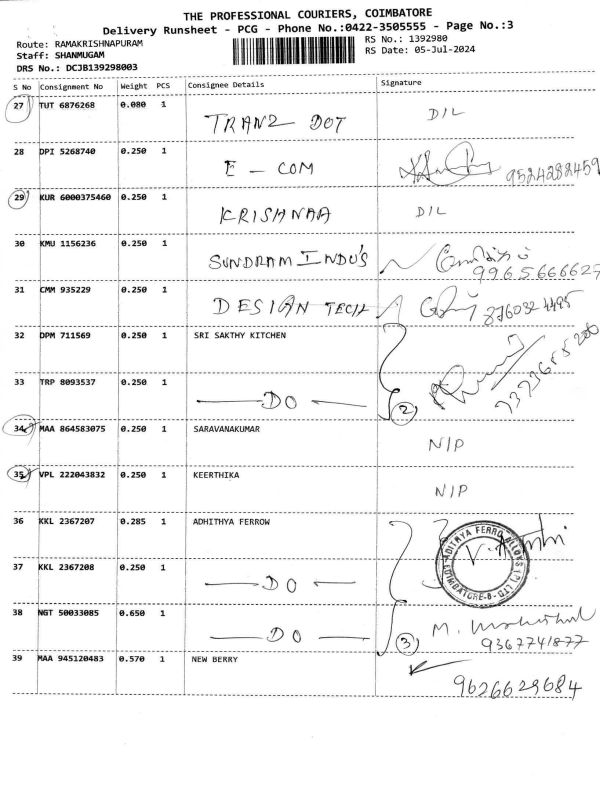 THE PROFESSIONAL COURIERS, COIMBATORE
Delivery Runsheet - PCG - Phone No.:0422-3505555 - Page No.:3
Route: RAMAKRISHNAPURAM
RS No.: 1392980
Staff: SHANMUGAM
RS Date: 05-Jul-2024
DRS No.: DCJB139298003
S No Consignment No Weight PCS Consignee Details Signature
27 TUT 6876268 0.080 1 TRANZ DOT D/L
28 DPI 5268740 0.250 1 E - COM 9524282459
29 KUR 6000375460 0.250 1 KRISHNAA D/L
30 KMU 1156236 0.250 1 SUNDRAM INDU'S
31 CMM 935229 0.250 1 DESIGN TECH
32 DPM 711569 0.250 1 SRI SAKTHY KITCHEN
33 TRP 8093537 0.250 1 — DO — 2
34 MAA 864583075 0.250 1 SARAVANAKUMAR N/P
35 VPL 222043832 0.250 1 KEERTHIKA N/P
36 KKL 2367207 0.285 1 ADHITHYA FERROW
ADITHYA FERRO ALLOYS (P) LTD COIMBATORE-6
37 KKL 2367208 0.250 1 — DO —
38 NGT 50033085 0.650 1 — DO — 3 M.
9367741877
39 MAA 945120483 0.570 1 NEW BERRY
9626629684